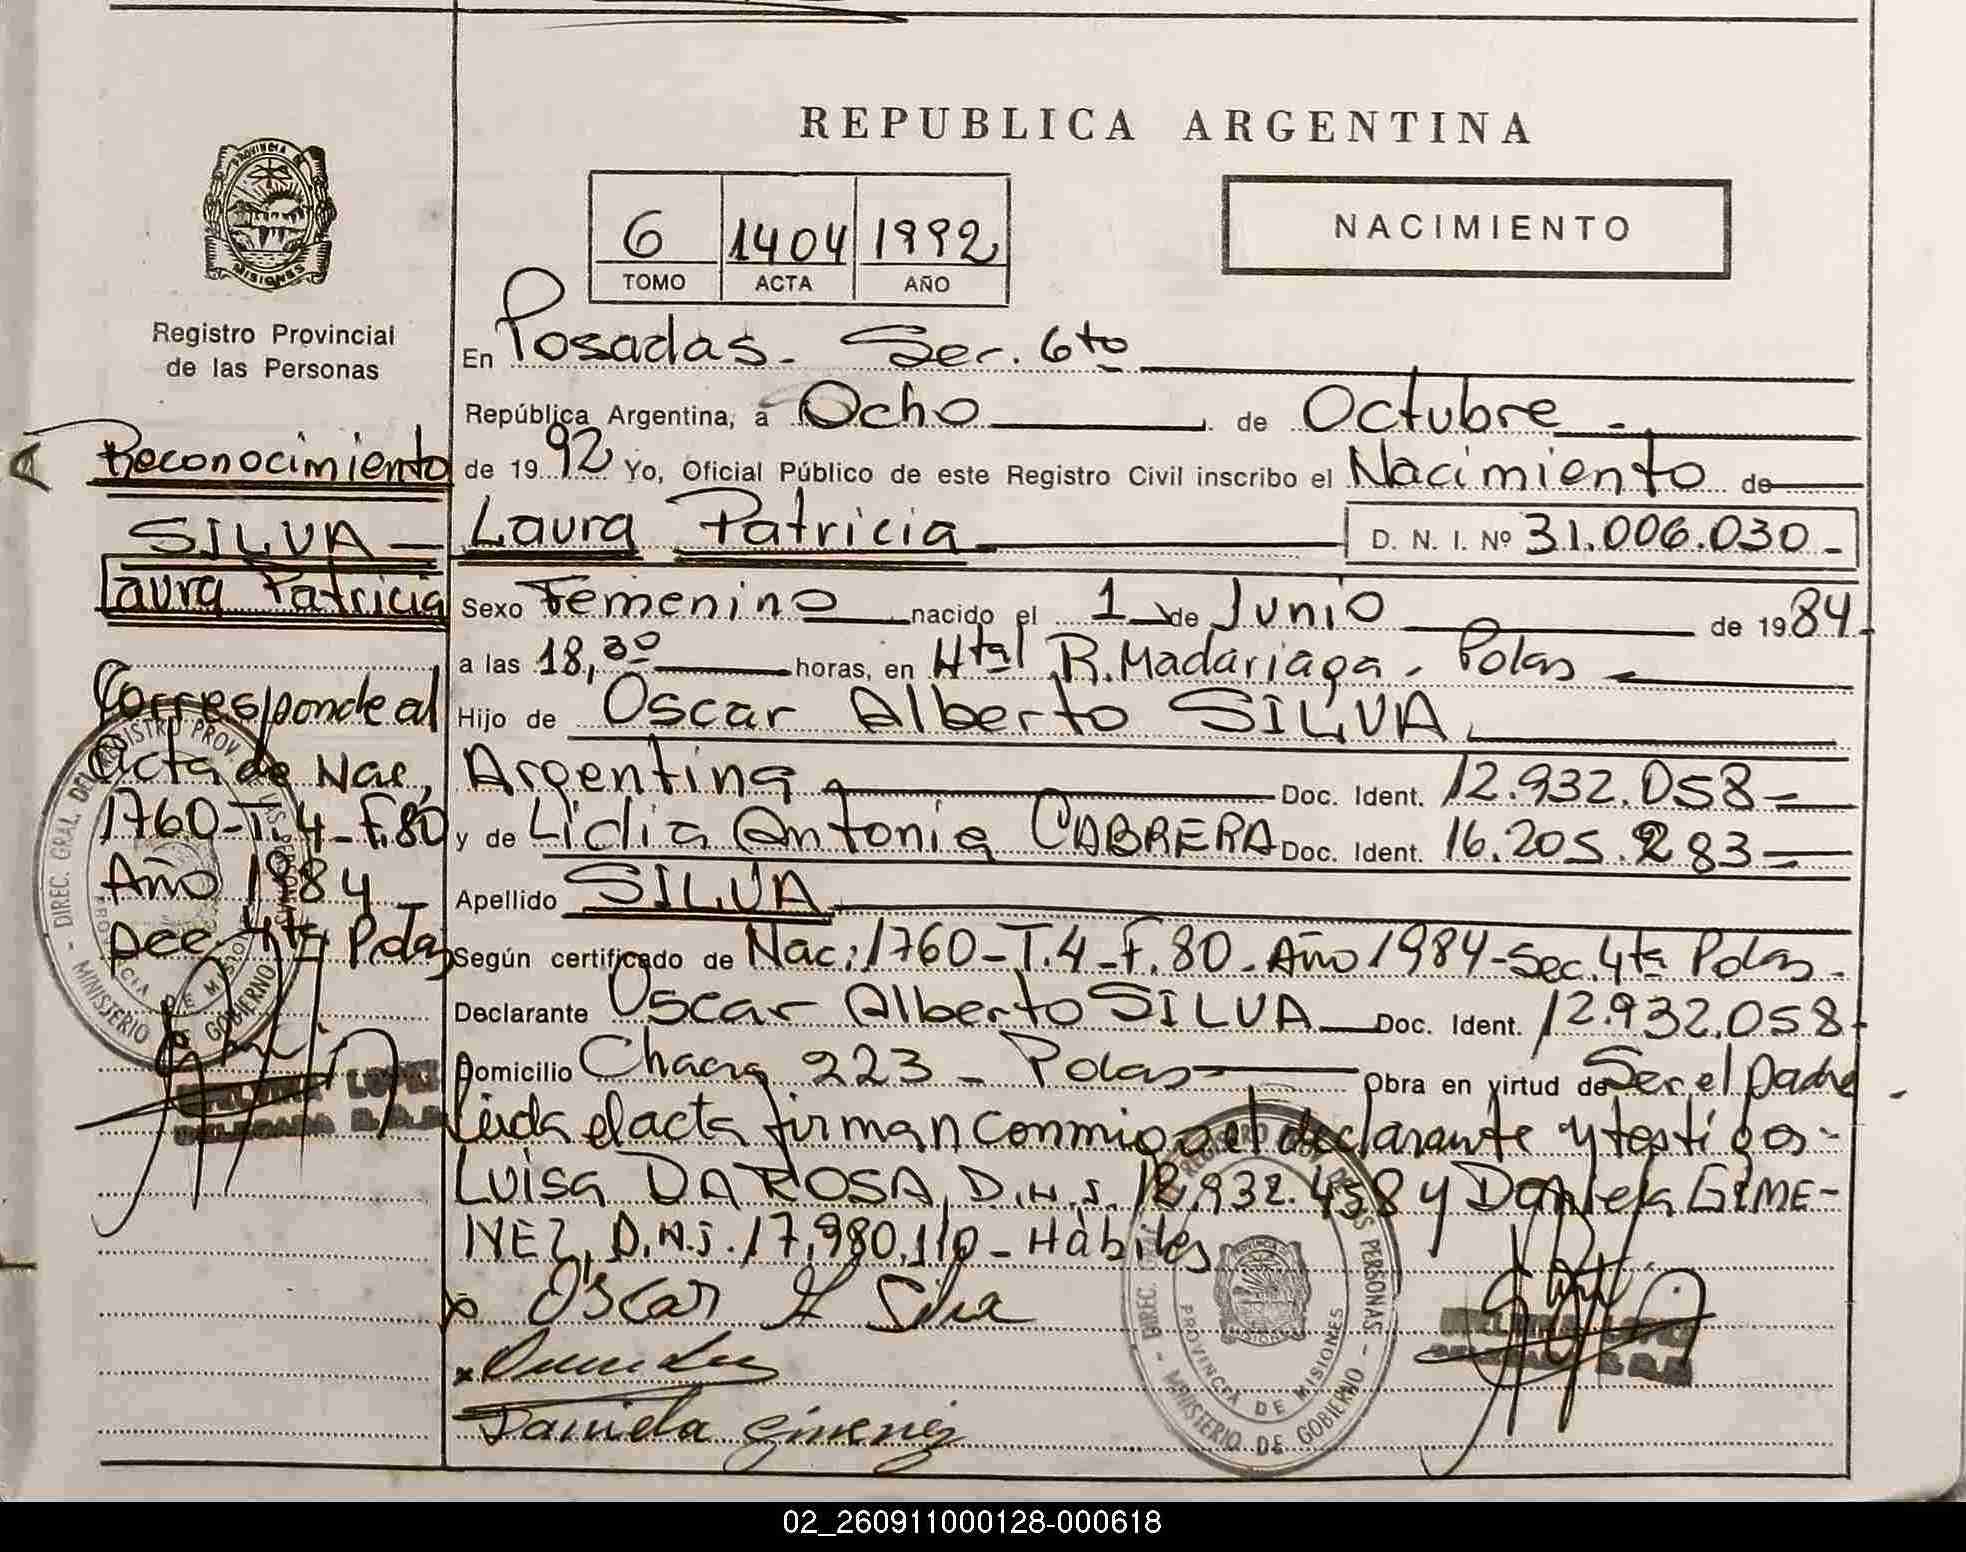 REPUBLICA ARGENTINA
PROVINCIA DE
MISIONES
6 1404 1992
TOMO ACTA AÑO
NACIMIENTO
Registro Provincial
de las Personas
Reconocimiento
SILVA
Laura Patricia
Corresponde al
Acta de Nac.
1760-T.4-F.80
Año 1984
Sec. 4ta Pdas
DIREC. GRAL. DEL REGISTRO PROV. DE LAS PERSONAS
PROVINCIA DE MISIONES
MINISTERIO DE GOBIERNO
LOPEZ
DELEGADA
En Posadas - Sec. 6to
República Argentina, a Ocho de Octubre -
de 1992 Yo, Oficial Público de este Registro Civil inscribo el Nacimiento de
Laura Patricia D. N. I. Nº 31.006.030 -
Sexo Femenino nacido el 1 de Junio de 1984 -
a las 18,30 horas, en Htal R. Madariaga - Pdas
Hijo de Oscar Alberto SILVA
Argentina Doc. Ident. 12.932.058 -
y de Lidia Antonia CABRERA Doc. Ident. 16.205.283 -
Apellido SILVA
Según certificado de Nac: 1760-T.4-F.80-Año 1984-Sec. 4ta Pdas -
Declarante Oscar Alberto SILVA Doc. Ident. 12.932.058 -
Domicilio Chacra 223 - Pdas Obra en virtud de Ser el padre -
Leida el acta firman conmigo el declarante y testigos -
Luisa DA ROSA, D.N.I. 12.932.458 y Daniela GIME-
NEZ, D.N.I. 17.980.110 - Hábiles
x Oscar A Silva
x
Daniela Gimenez
DIREC. GRAL. DEL REGISTRO PROV. DE LAS PERSONAS
PROVINCIA DE MISIONES
MINISTERIO DE GOBIERNO
02_260911000128-000618